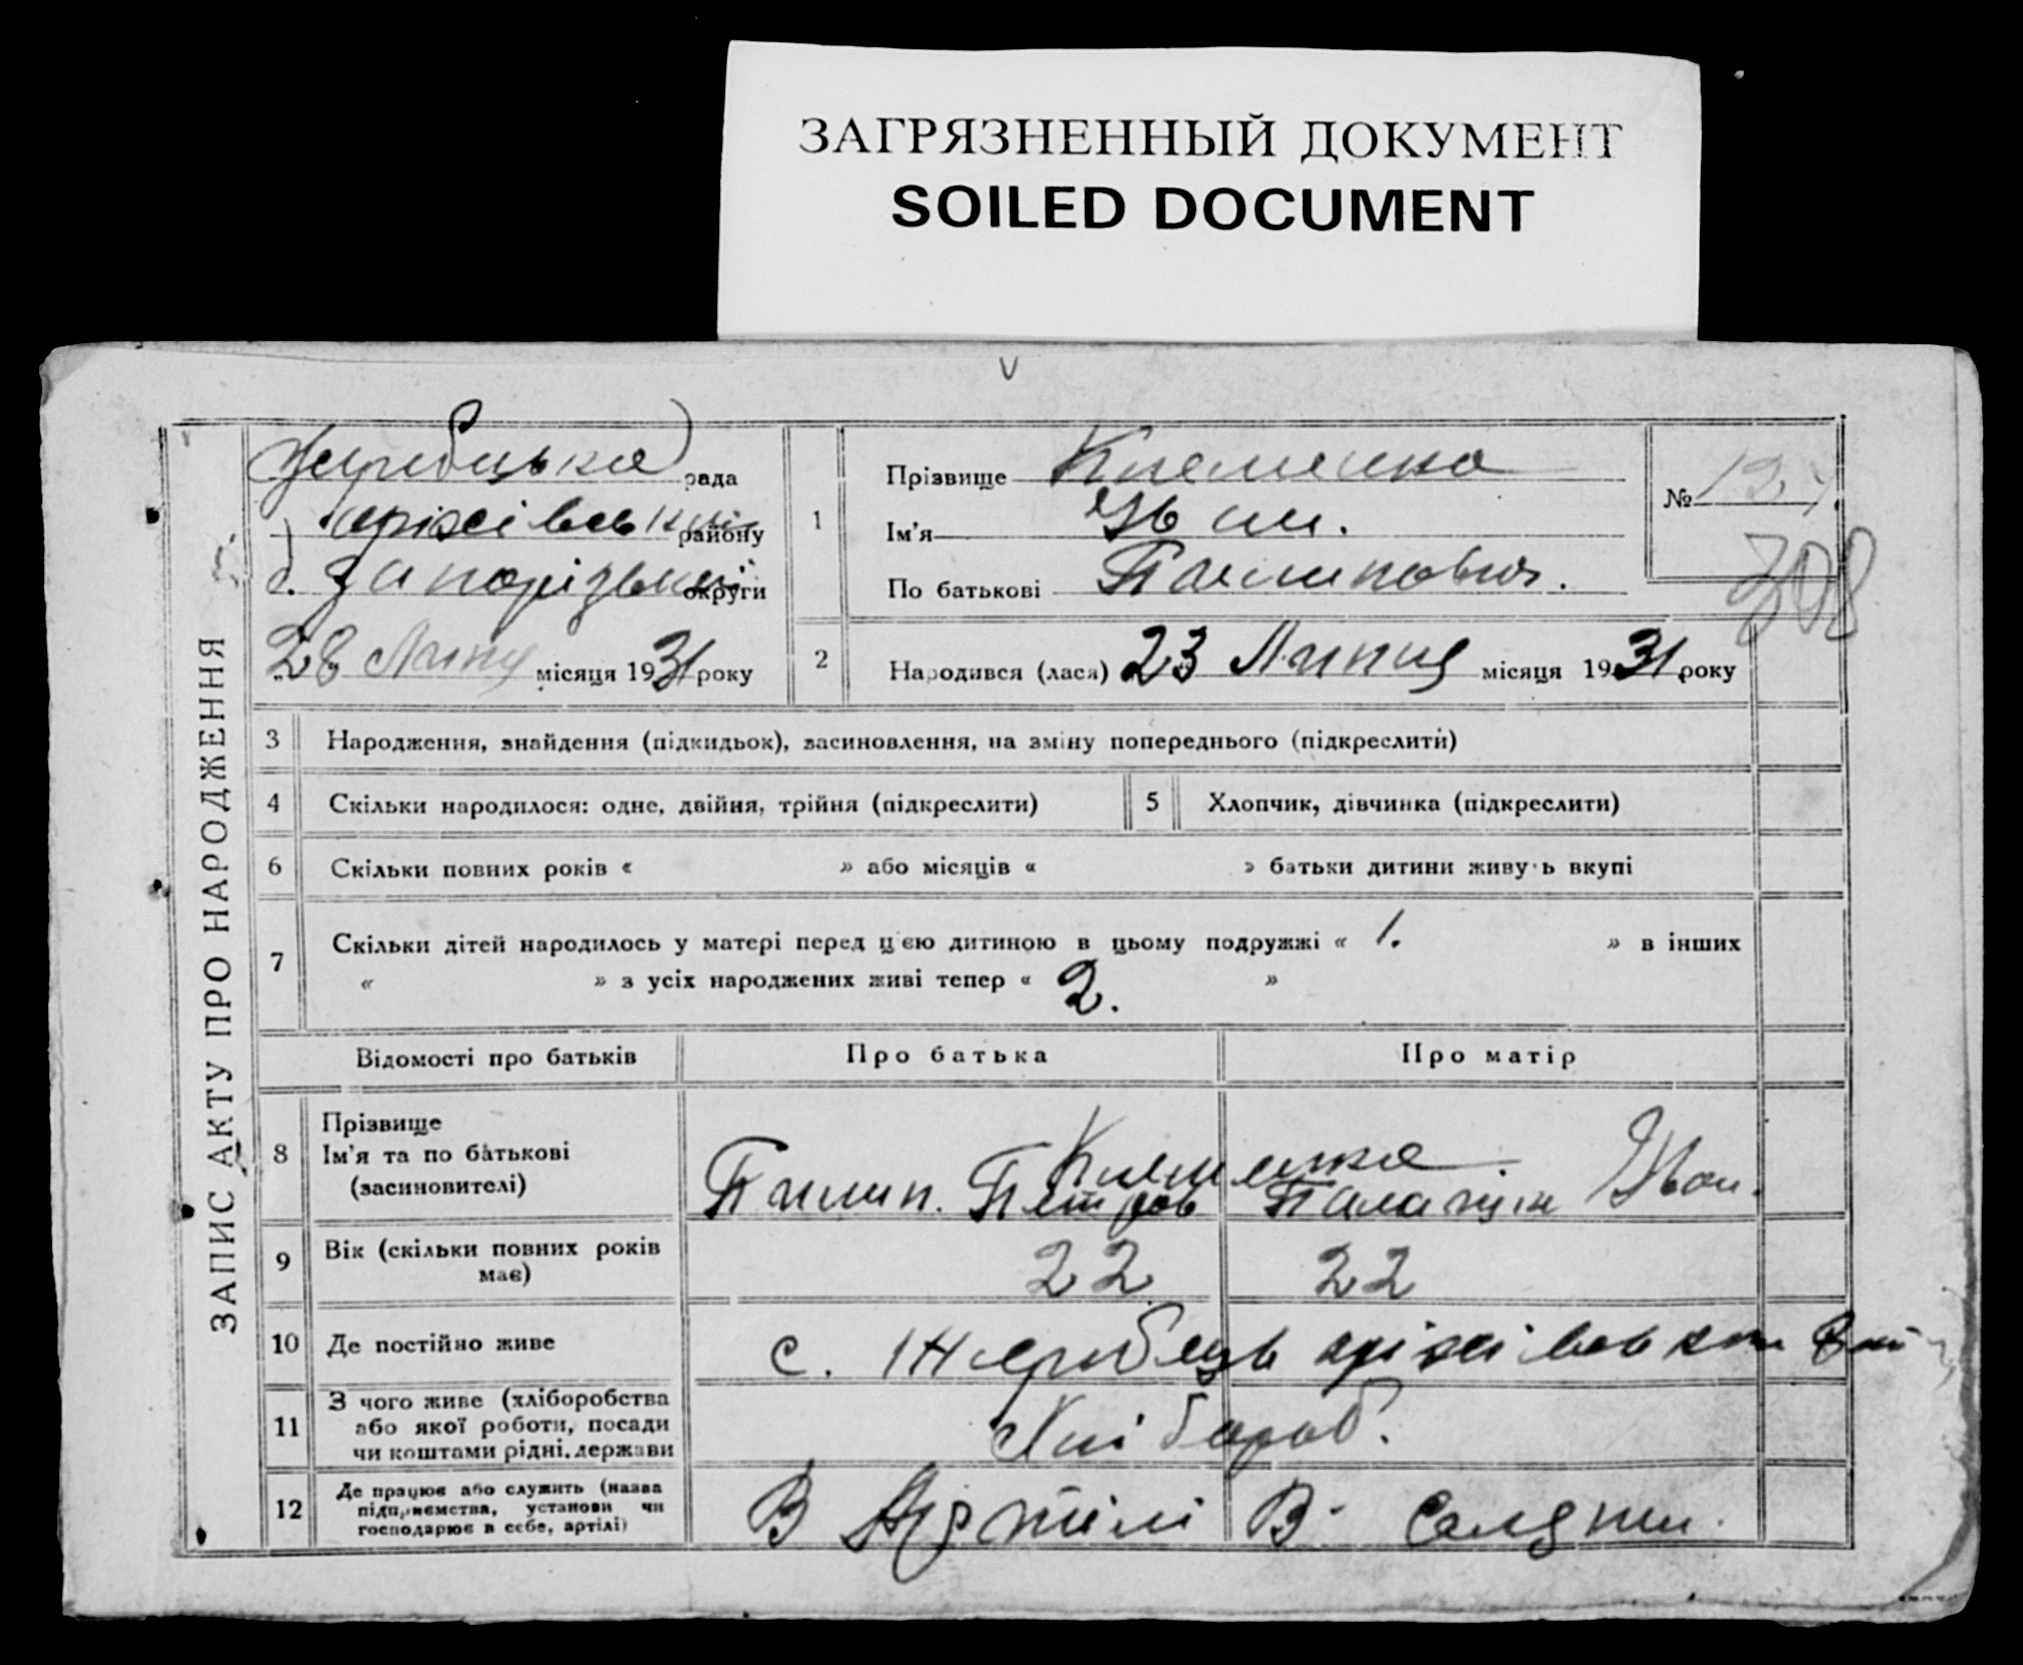 ЗАГРЯЗНЕННЫЙ ДОКУМЕНТ
SOILED DOCUMENT
V
ЗАПИС АКТУ ПРО НАРОДЖЕННЯ
рада
району
округи
28 Липня місяця 1931 року
1
Прізвище Клименко
Ім'я Іван.
По батькові Пилипович.
№
708
2 Народився (лася) 23 Липня місяця 1931 року
3 Народження, знайдення (підкидьок), засиновлення, на зміну попереднього (підкреслити)
4 Скільки народилося: одне, двійня, трійня (підкреслити)
5 Хлопчик, дівчинка (підкреслити)
6 Скільки повних років « » або місяців « » батьки дитини живуть вкупі
7 Скільки дітей народилось у матері перед цією дитиною в цьому подружжі « 1. » в інших
« » з усіх народжених живі тепер « 2. »
Відомості про батьків Про батька Про матір
8 Прізвище
Ім'я та по батькові
(засиновителі)
Клименко
Пилип. Петров Івон.
9 Вік (скільки повних років має) 22 22
10 Де постійно живе с. Жеребець
11 З чого живе (хліборобства
або якої роботи, посади
чи коштами рідні, держави
Хлібороб.
12 Де працює або служить (назва
підприємства, установи чи
господарює в себе, артілі)
В Артілі В